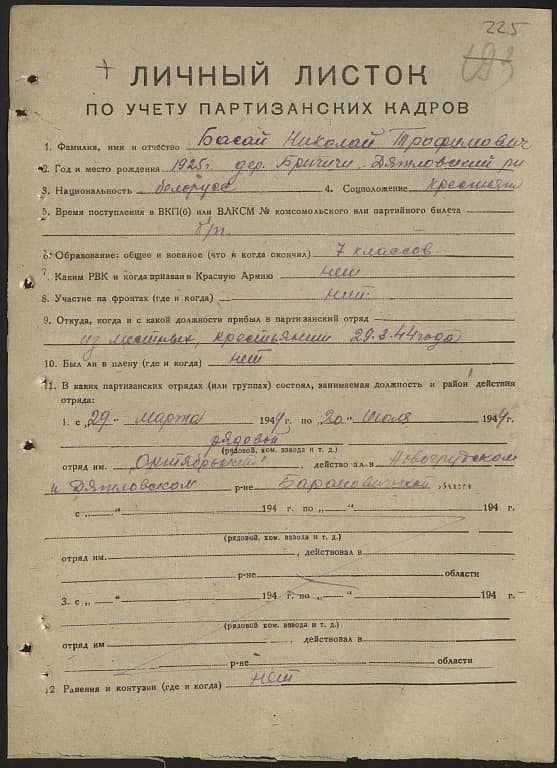 225
ЛИЧНЫЙ ЛИСТОК
ПО УЧЕТУ ПАРТИЗАНСКИХ КАДРОВ
1. Фамилия, имя и отчество Басай Николай Трофимович
2. Год и место рождения 1925г. дер. Бричичи, Дятловский р-н
3. Национальность белорус 4. Соцположение крестьянин
5. Время поступления в ВКП(б) или ВЛКСМ № комсомольского или партийного билета
б/п.
6. Образование: общее и военное (что и когда окончил) 7 классов
7. Каким РВК и когда призван в Красную Армию нет
8. Участие на фронтах (где и когда) нет
9. Откуда, когда и с какой должности прибыл в партизанский отряд
из местных, крестьянин 29.3.44 года
10. Был ли в плену (где и когда) нет
11. В каких партизанских отрядах (или группах) состоял, занимаемая должность и район действия
отряда:
1. с „29“ марта 1944 г. по „20“ июля 1944 г.
рядовой
(рядовой, ком. взвода и т. д.)
отряд им. „Октябрьский“, действовал в Новогрудском
и Дятловском р-не Барановичской области
с „ “ 194 г. по „ “ 194 г.
(рядовой, ком. взвода и т. д.)
отряд им. , действовал в
р-не области
3. с „ “ 194 г. по „ “ 194 г.
(рядовой, ком. взвода и т. д.)
отряд им , действовал в
р-не области
12 Ранения и контузии (где и когда) нет